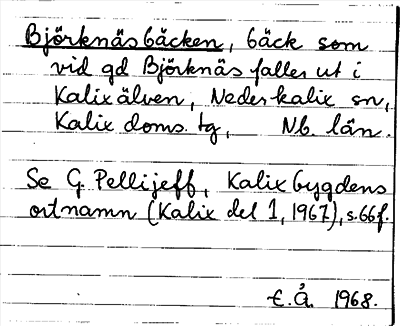 Björknäsbäcken, bäck som
vid gd Björknäs faller ut i
Kalixälven, Nederkalix sn,
Kalix doms. tg, Nb. län.
Se G. Pellijeff, Kalixbygdens
ortnamn (Kalix del 1, 1967), s. 66 f.
E.Å. 1968.